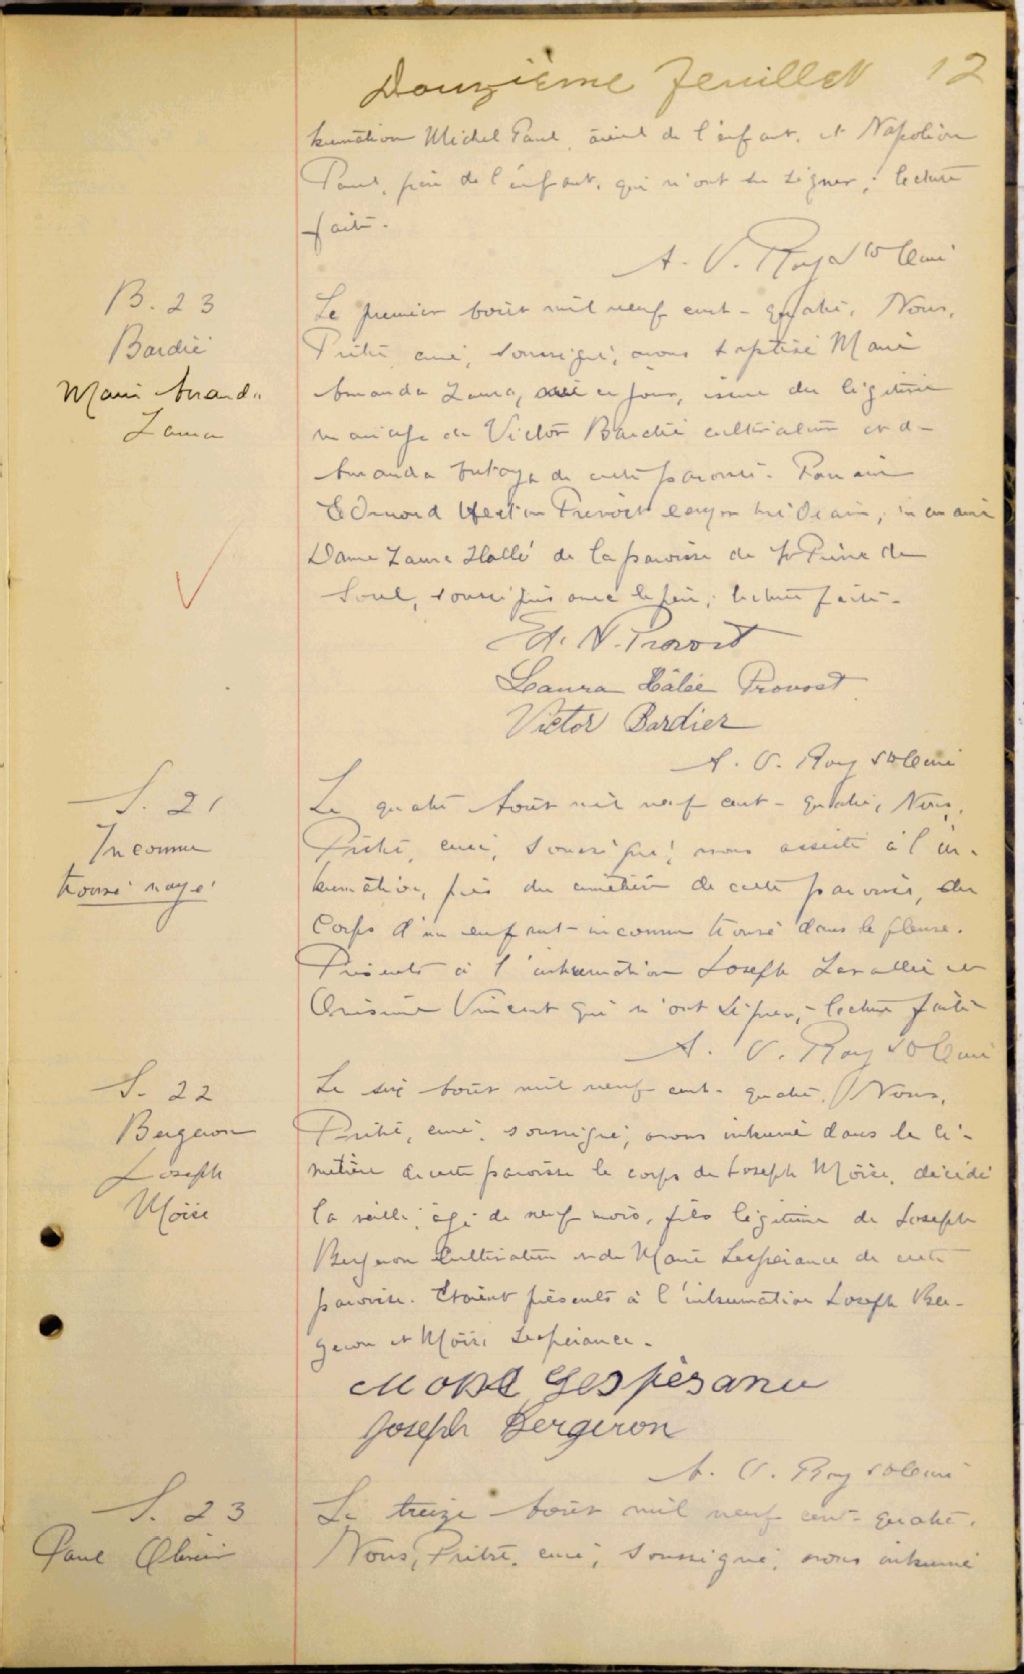 Douzième feuillet 12
humation Michel Paul, aieul de l'enfant, et Napoléon
Paul, père de l'enfant, qui n'ont su signer; lecture
faite.
A. V. Roy Ptre Curé
B. 23
Bardié
Marie Amanda
Laura
Le premier Août mil neuf cent-quatre, Nous,
Prêtre, curé, soussigné, avons baptisé Marie
Amanda Laura, née ce jour, issue du légitime
mariage de Victor Bardié cultivateur et d'
Amanda de cette paroisse. Parrain
Edmond Prévost, marraine
Dame Laura Hallé de la paroisse de St Pierre de
Sorel, soussignés avec le père; lecture faite.
Ed. N. Provost
Laura Hâlée Provost
Victor Bardier
A. V. Roy Ptre Curé
S. 21
Inconnu
trouvé noyé
Le quatre Août mil neuf cent-quatre, Nous,
Prêtre, curé, soussigné, avons assisté à l'in-
humation, près du cimetière de cette paroisse, du
corps d'un enfant inconnu trouvé dans le fleuve.
Présents à l'inhumation Joseph Lavallée et
Onésime Vincent qui n'ont signer; lecture faite
A. V. Roy Ptre Curé
S. 22
Bergeron
Joseph
Moïse
Le six Août mil neuf cent-quatre, Nous,
Prêtre, curé, soussigné, avons inhumé dans le ci-
metière de cette paroisse le corps de Joseph Moïse, décédé
la veille, âgé de neuf mois, fils légitime de Joseph
Bergeron cultivateur et de Marie Lespérance de cette
paroisse. Etaient présents à l'inhumation Joseph Ber-
geron et Moïse Lespérance.
Moise Lespérance
Joseph Bergeron
A. V. Roy Ptre Curé
S. 23
Paul Olivier
Le treize Août mil neuf cent-quatre,
Nous, Prêtre, curé, soussigné, avons inhumé